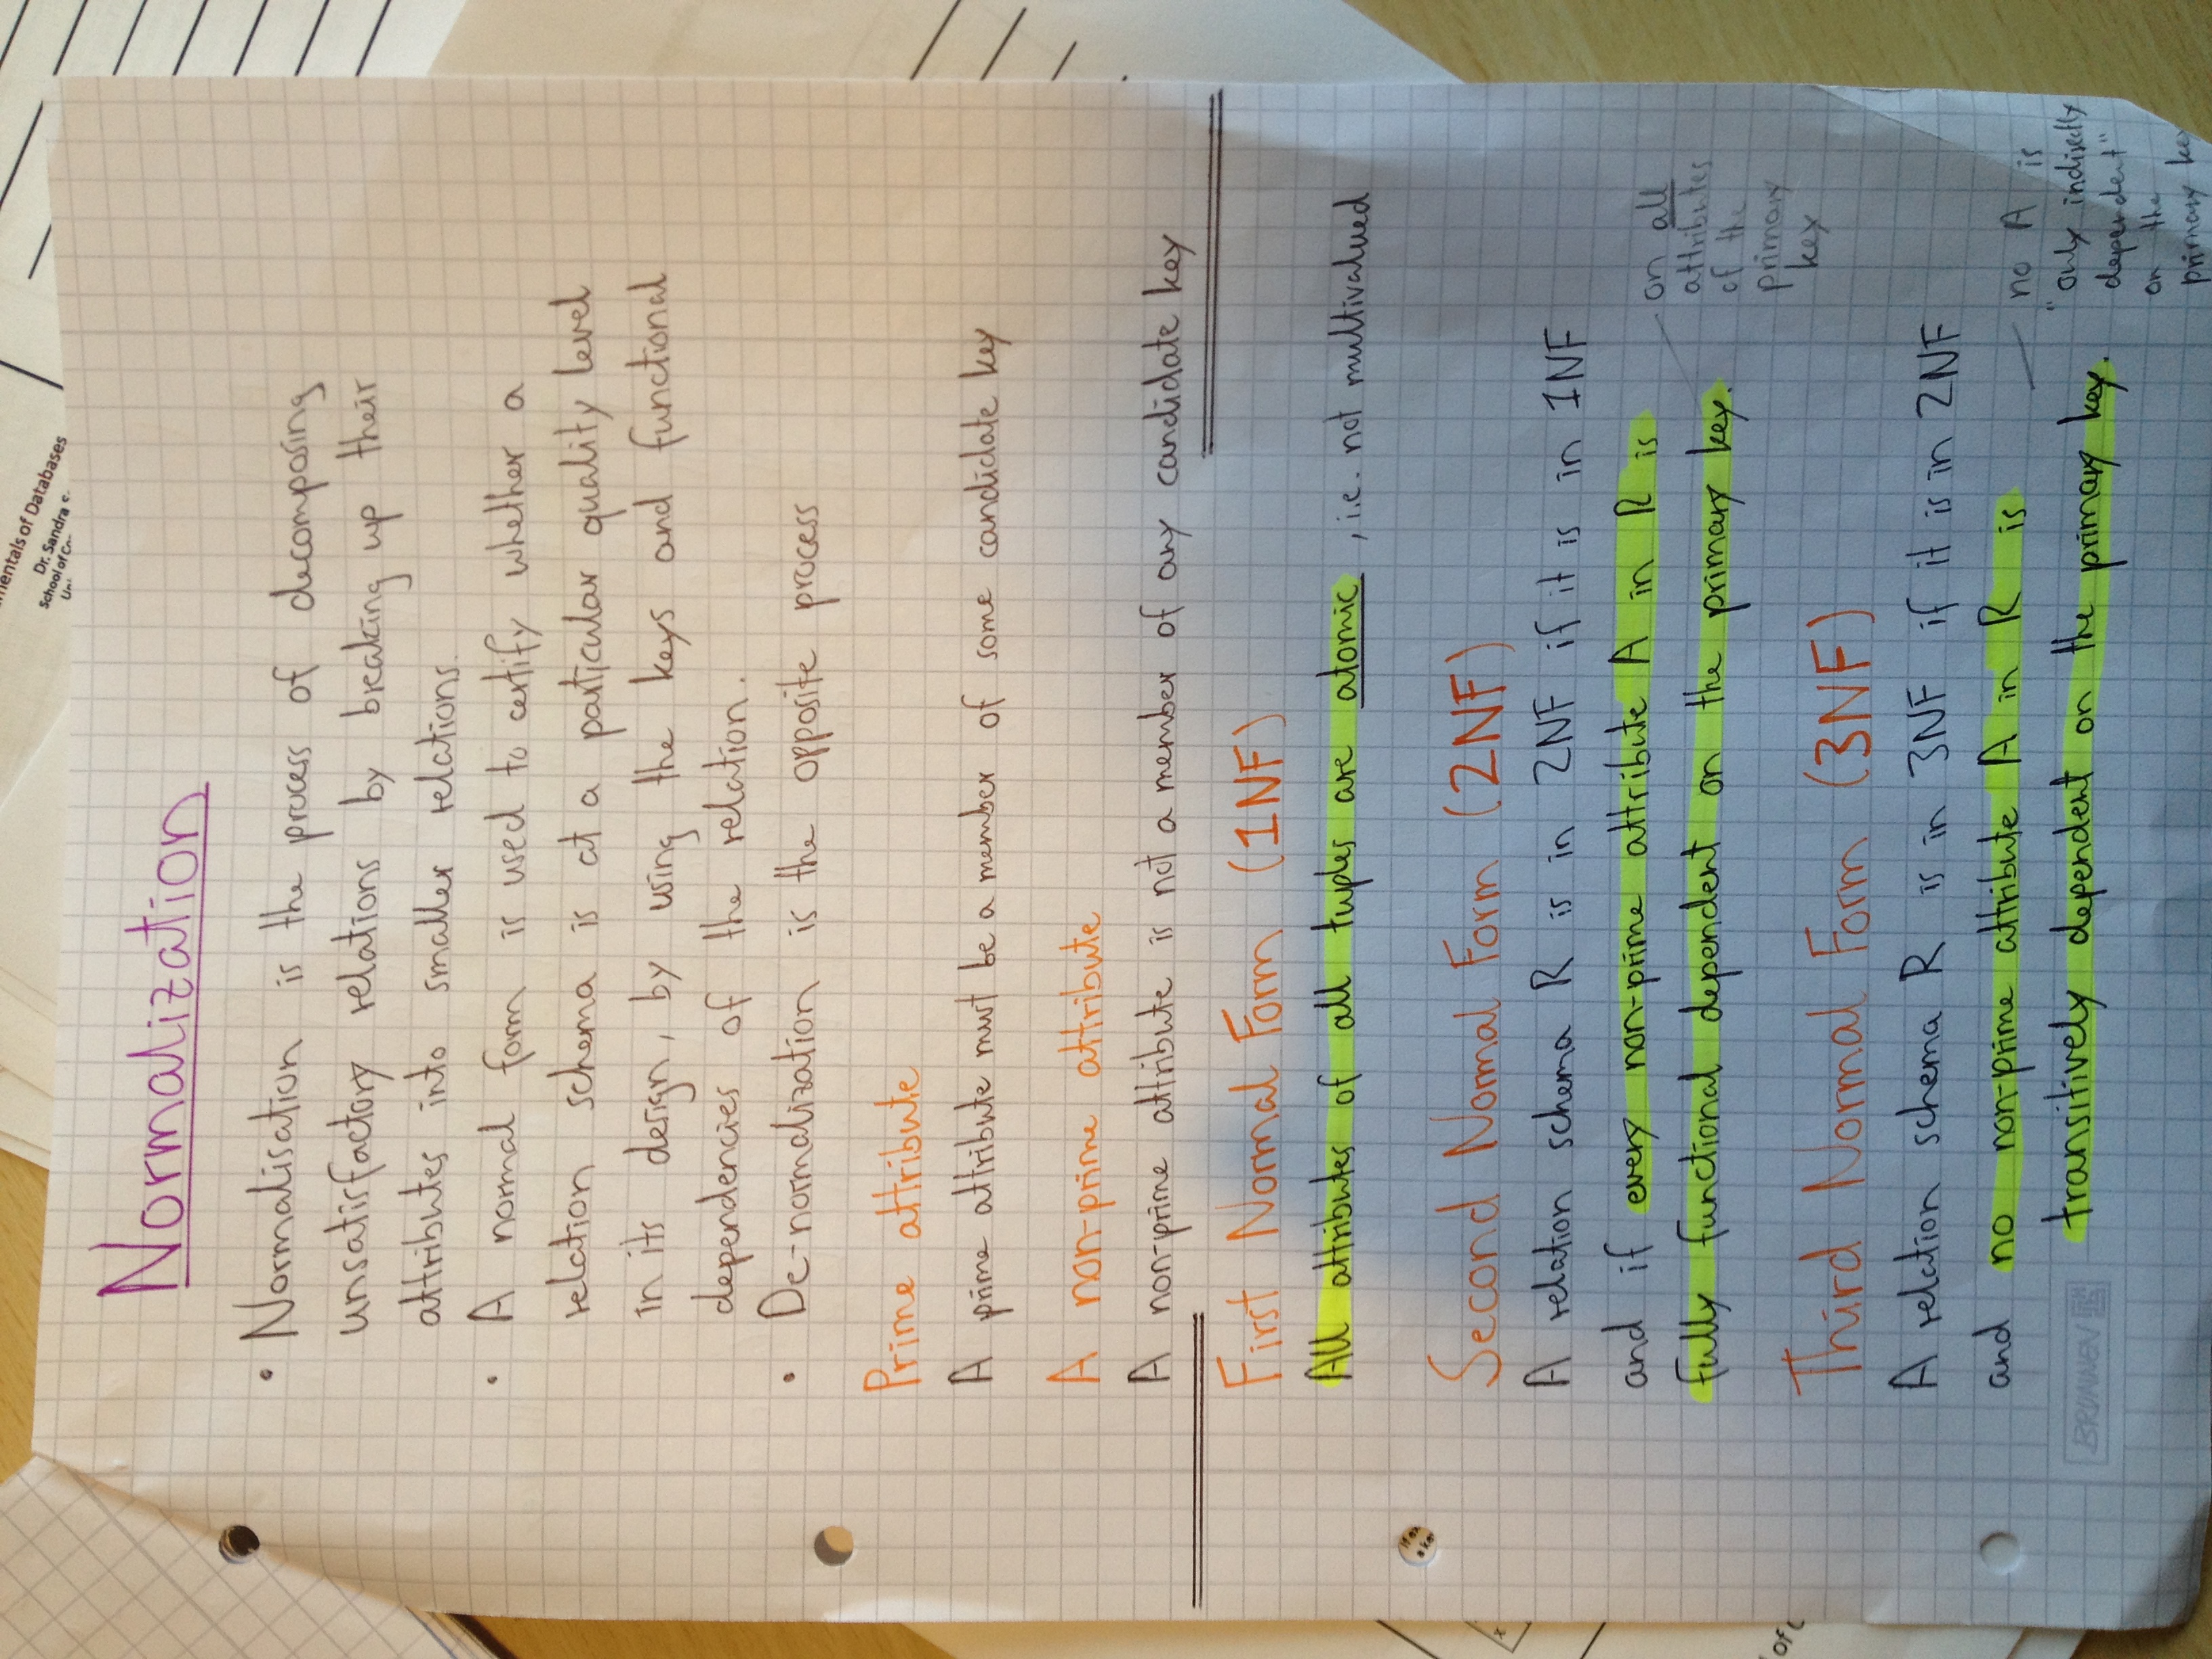 mentals of Databases
Dr. Sandra
School of
Normalization
• Normalisation is the process of decomposing
unsatisfactory relations by breaking up their
attributes into smaller relations.
• A normal form is used to certify whether a
relation schema is at a particular quality level
in its design, by using the keys and functional
dependencies of the relation.
• De-normalization is the opposite process
Prime attribute
A prime attribute must be a member of some candidate key
A non-prime attribute
A non-prime attribute is not a member of any candidate key
First Normal Form (1NF)
All attributes of all tuples are atomic, i.e. not multivalued
Second Normal Form (2NF)
A relation schema R is in 2NF if it is in 1NF
and if every non-prime attribute A in R is
fully functional dependent on the primary key.
on all
attributes
of the
primary
key
Third Normal Form (3NF)
A relation schema R is in 3NF if it is in 2NF
and no non-prime attribute A in R is
transitively dependent on the primary key.
no A is
"only indirectly
dependent"
on the
primary key
BRUNNEN
of